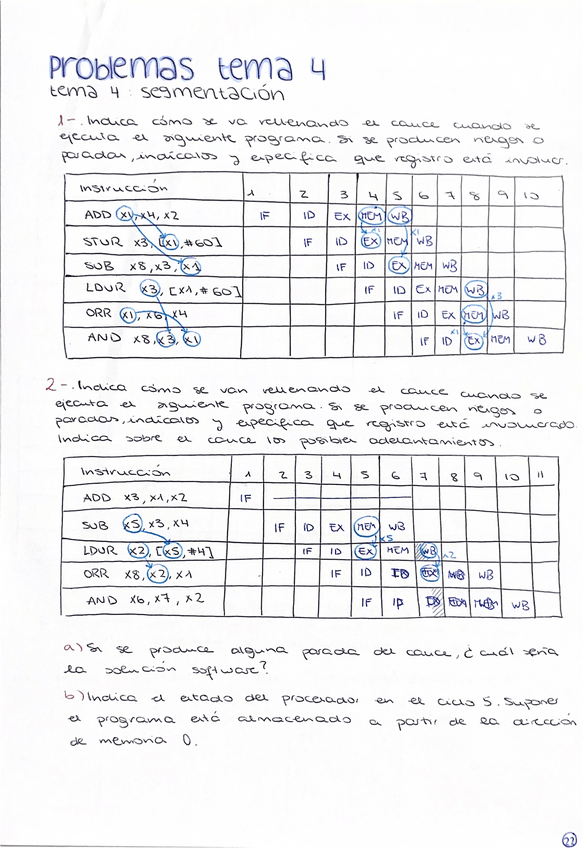 Problemas tema 4
tema 4: segmentación
1-. Indica cómo se va rellenando el cauce cuando se
ejecuta el siguiente programa. Si se producen riesgos o
paradas, indícalos y especifica que registro está involucr.
Instrucción 1 2 3 4 5 6 7 8 9 10
ADD x1, x4, x2 IF ID EX MEM WB
x1 x1
STUR x3, [x1, #60] IF ID EX MEM WB
SUB x8, x3, x1 IF ID EX MEM WB
LDUR x3, [x1, #60] IF ID EX MEM WB
x3
ORR x1, x6, x4 IF ID EX MEM WB
x1
AND x8, x3, x1 IF ID EX MEM WB
2-. Indica cómo se van rellenando el cauce cuando se
ejecuta el siguiente programa. Si se producen riesgos o
paradas, indícalos y especifica que registro está involucrado.
Indica sobre el cauce los posibles adelantamientos.
Instrucción 1 2 3 4 5 6 7 8 9 10 11
ADD x3, x1, x2 IF
SUB x5, x3, x4 IF ID EX MEM WB
x5
LDUR x2, [x5, #4] IF ID EX MEM WB
x2
ORR x8, x2, x1 IF ID EX WB
AND x6, x7, x2 IF ID WB
a) Si se produce alguna parada del cauce, ¿cuál sería
la solución software?
b) Indica el estado del procesador en el ciclo 5. Suponer
el programa está almacenado a partir de la dirección
de memoria 0.
22